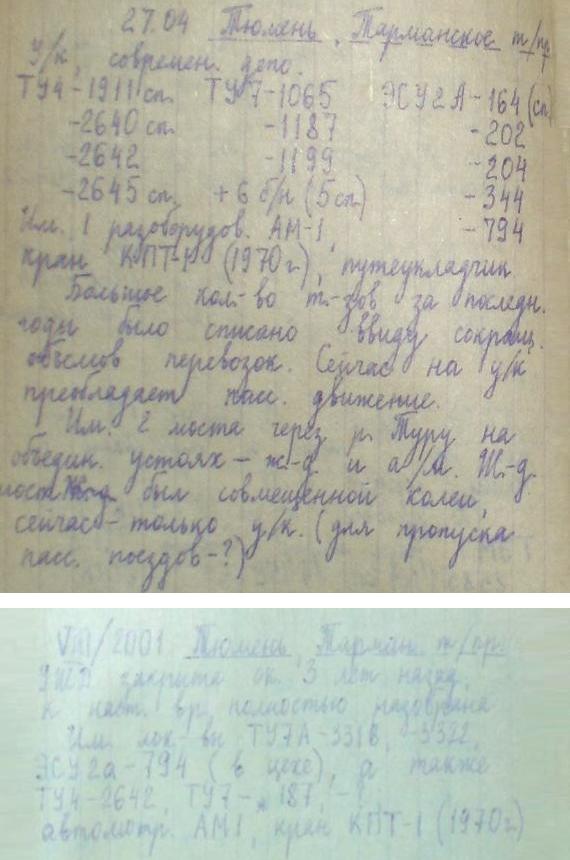 27.04 Тюмень, Тарманское т/пр
У/к, современ. депо.
ТУ4-1911 сп. ТУ7-1065 ЭСУ2А-164 (сп.)
-2640 сп. -1187 -202
-2642 -1199 -204
-2645 сп. +6 б/н (5сп.) -344
Им. 1 разоборудов. АМ-1, -794
кран КПТ-1 (1970г.), путеукладчик.
Большое кол-во т-зов за последн.
годы было списано ввиду сокращ.
объемов перевозок. Сейчас на у/к
преобладает пасс. движение.
Им. 2 моста через р. Туру на
объедин. устоях – ж.-д. и а/м. Ж.-д.
мост был совмещенной колеи,
сейчас – только у/к. (для пропуска
пасс. поездов-?)
VIII/2001 Тюмень, Тарман. т/пр.
УЖД закрыта ок. 3 лет назад,
к наст. вр. полностью разобрана
Им. лок-вы ТУ7А-3318, -3322,
ЭСУ2а-794 (в цехе), а также
ТУ4-2642, ТУ7- 187, -?,
автомотр. АМ1, кран КПТ-1 (1970г.)